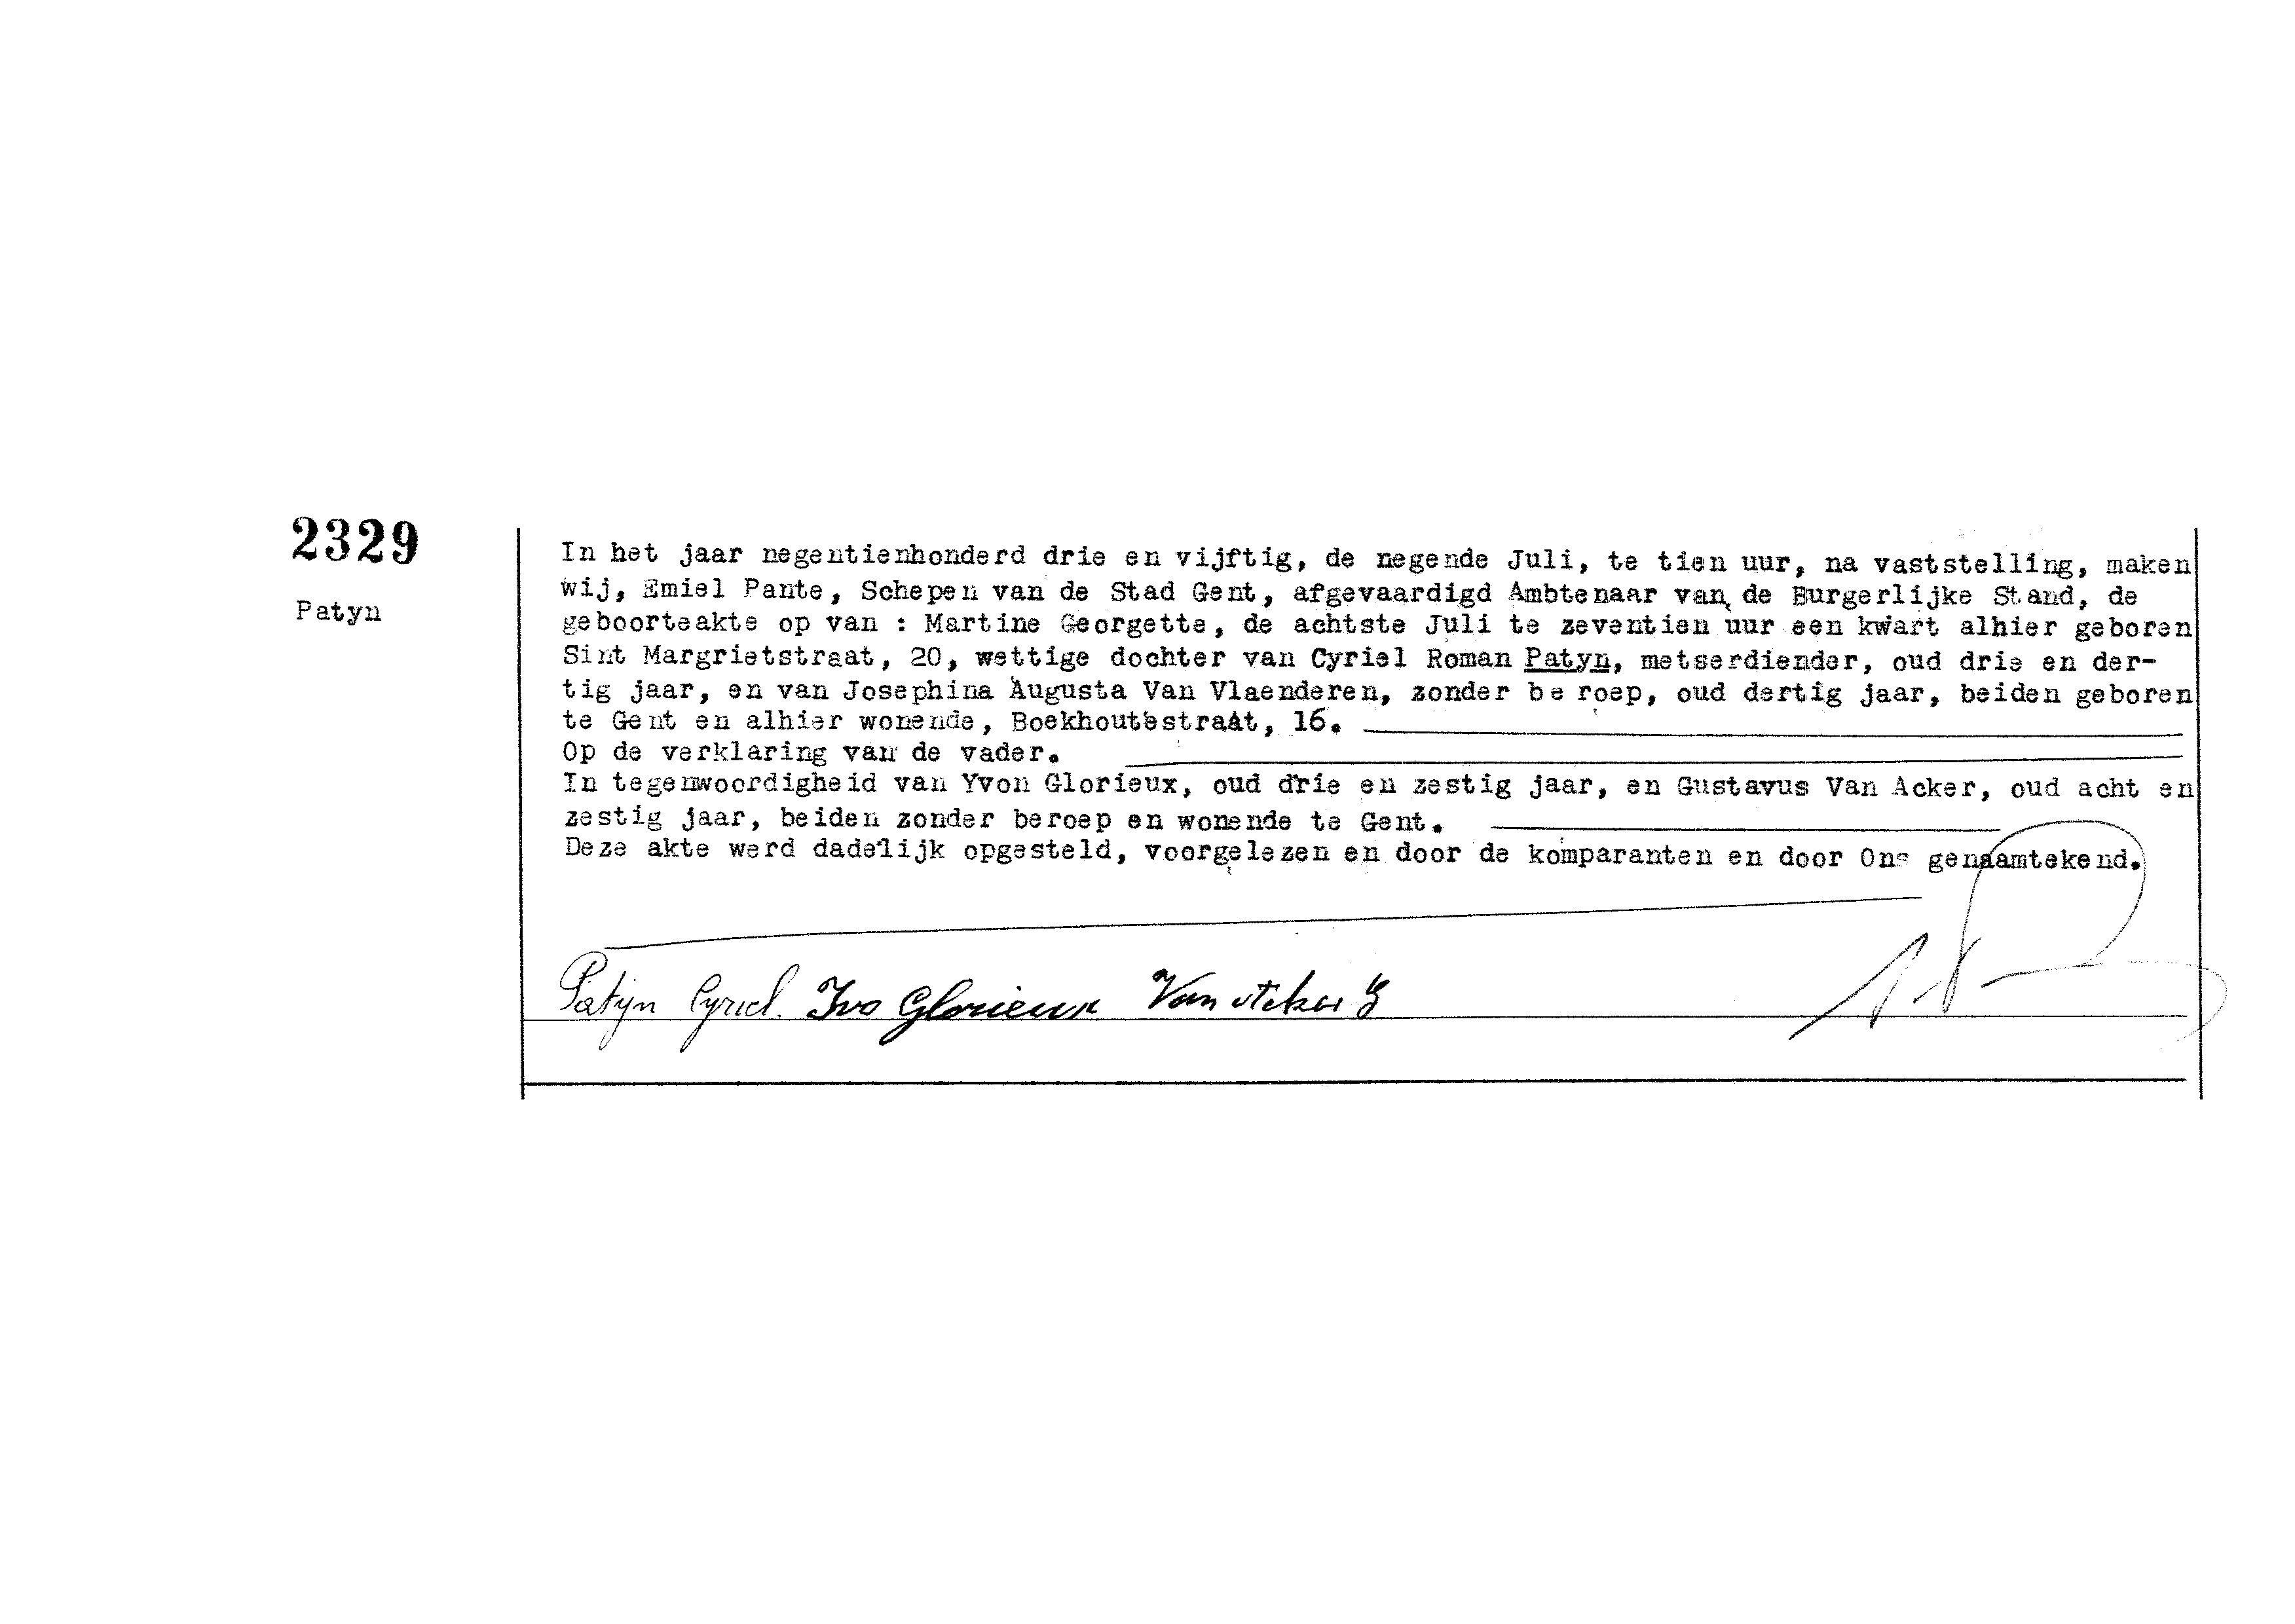 2329
Patyn
In het jaar negentienhonderd drie en vijftig, de negende Juli, te tien uur, na vaststelling, maken
wij, Emiel Pante, Schepen van de Stad Gent, afgevaardigd Ambtenaar van de Burgerlijke Stand, de
geboorteakte op van : Martine Georgette, de achtste Juli te zeventien uur een kwart alhier geboren
Sint Margrietstraat, 20, wettige dochter van Cyriel Roman Patyn, metserdiender, oud drie en der-
tig jaar, en van Josephina Augusta Van Vlaenderen, zonder beroep, oud dertig jaar, beiden geboren
te Gent en alhier wonende, Boekhoutestraat, 16.
Op de verklaring van de vader.
In tegenwoordigheid van Yvon Glorieux, oud drie en zestig jaar, en Gustavus Van Acker, oud acht en
zestig jaar, beiden zonder beroep en wonende te Gent.
Deze akte werd dadelijk opgesteld, voorgelezen en door de komparanten en door Ons genaamtekend.
Patyn Cyriel. Ivo Glorieux Van Acker G